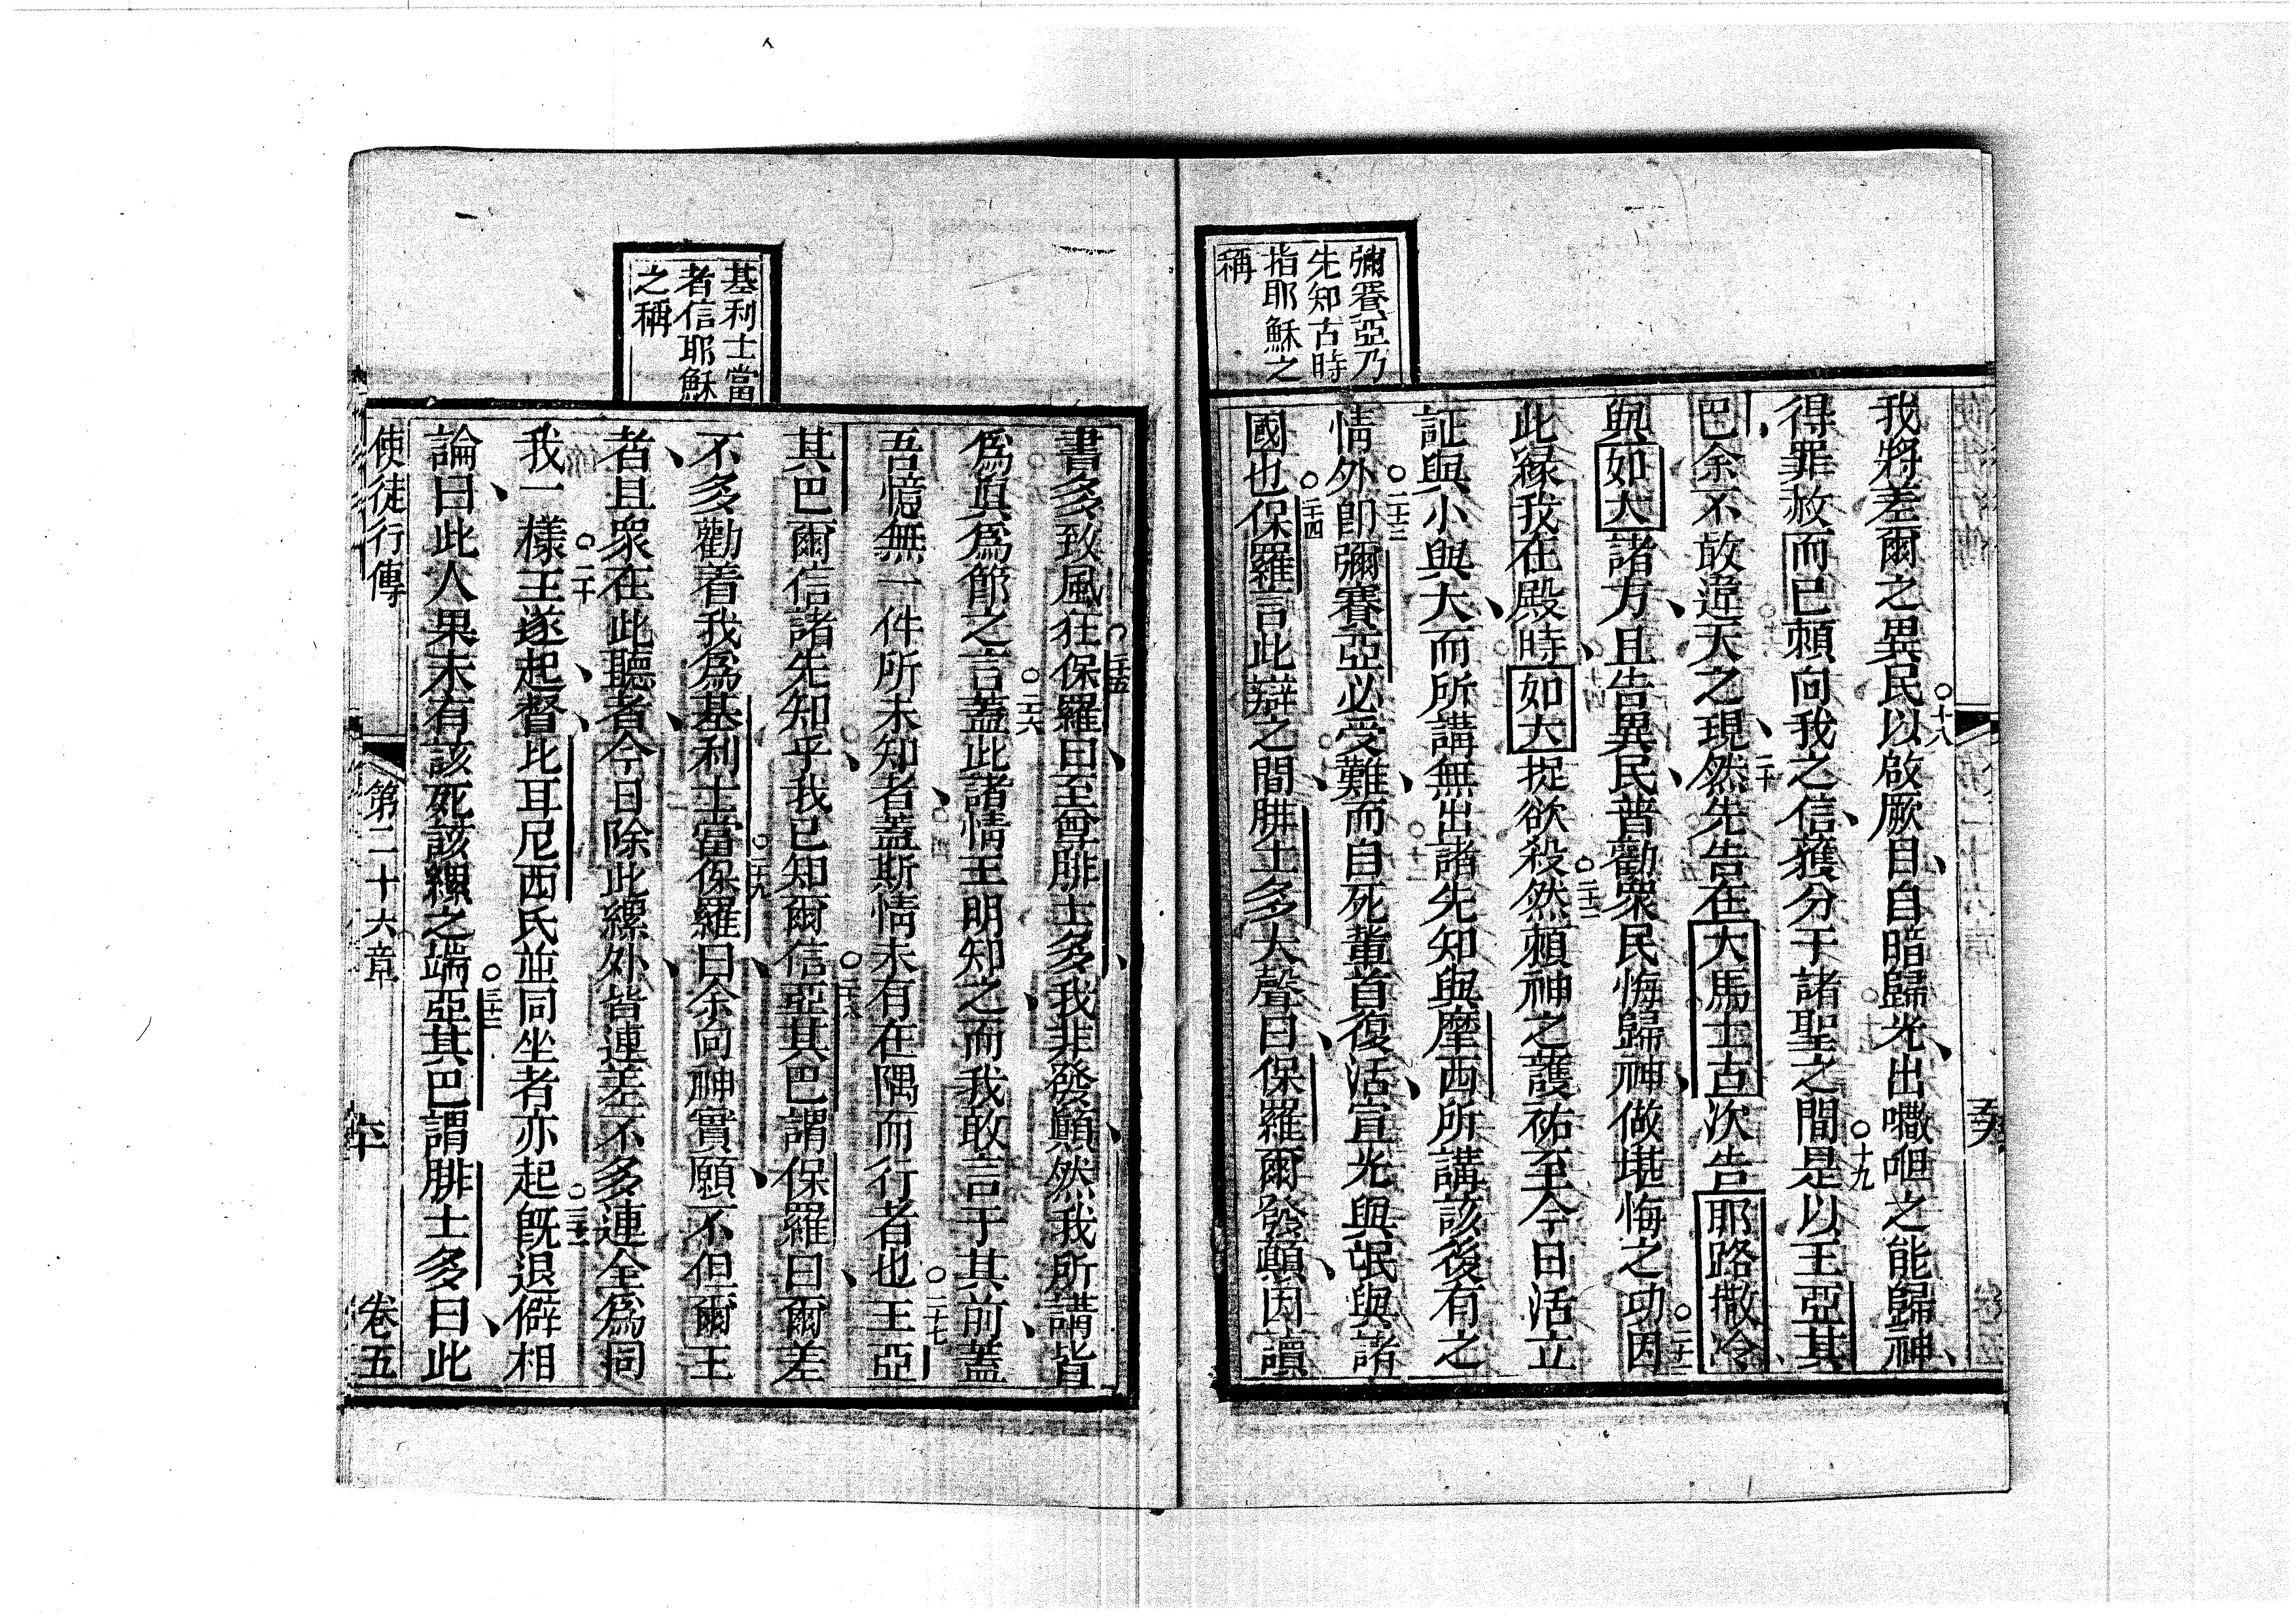 彌賽亞乃
先知古時
指耶穌之
稱
我將差爾之異民以啟厥目自暗歸光出囄呾之能歸神
得罪赦而已賴向我之信獲分于諸聖之間是以王亞其
巴余不敢違天之現然先告在大馬士古次告耶路撒冷
與如大諸方且告異民普勸衆民悔歸神做堪悔之功因
此緣我在殿時如大捉欲殺然賴神之護祐至今日活立
証與小與大而所講無出諸先知與摩西所講該後有之
情外卽彌賽亞必受難而自死輩首復活宣光與氓與諸
國也保羅言此辯之間腓士多大聲曰保羅爾發顛因讀
基利士當
者信耶穌
之稱
書多致風狂保羅曰至尊腓士多我非發顛然我所講皆
爲眞爲節之言蓋此諸情王明知之而我敢言于其前蓋
吾憶無一件所未知者蓋斯情未有在隅而行者也王亞
其巴爾信諸先知乎我已知爾信亞其巴謂保羅曰爾差
不多勸着我爲基利士當保羅曰余向神實願不但爾王
者且衆在此聽者今日除此縲外皆連差不多連全爲同
我一樣王遂起督比耳尼西氏並同坐者亦起旣退僻相
論曰此人果未有該死該縲之端亞其巴謂腓士多曰此
使徒行傳 第二十六章 卷五